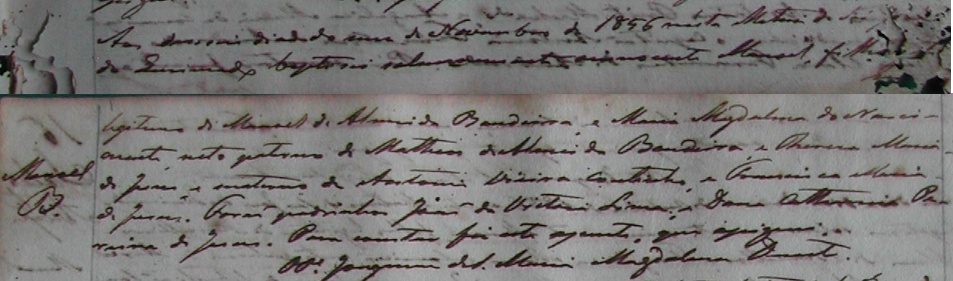 Aos dezeseis dias do mes de Novembro de 1856 nesta Matriz de
de Queimados baptisei solemnemente o innocente Manoel, filho
legitimo de Manoel de Almeida Bandeira, e Maria Magdalena do Nasci-
mento neto paterno de Matheos de Almeida Bandeira, e Thereza Maria
Manoel
de Jesus, e materno de Antonio Vieira Coutinho, e Francisca Maria
B.
de Jesus. Foraõ padrinhos Joaõ da Victoria Lima, e Dona
de Jesus. Para constar fiz este assento, que assignei.
Joaquim de S. Maria Magdalena Duarte.